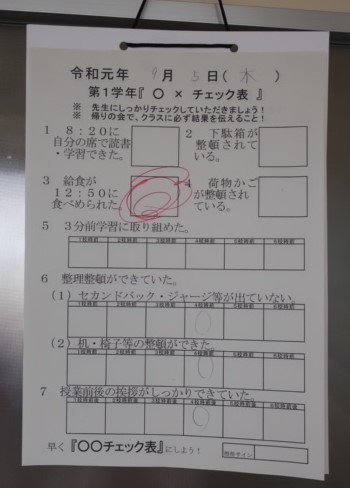 令和元年 9月 5日(木)
第1学年『 ○ × チェック表 』
※ 先生にしっかりチェックしていただきましょう!
※ 帰りの会で、クラスに必ず結果を伝えること!
1 8:20に自分の席で読書・学習できた。
2 下駄箱が整頓されている。
3 給食が12:50に食べめられた。
4 荷物かごが整頓されている。
5 3分前学習に取り組めた。
1校時前 2校時前 3校時前 4校時前 5校時前 6校時前
6 整理整頓ができていた。
(1)セカンドバック・ジャージ等が出ていない。
1校時前 2校時前 3校時前 4校時前 5校時前 6校時前
○
(2)机・椅子等の整頓ができた。
1校時前 2校時前 3校時前 4校時前 5校時前 6校時前
○
7 授業前後の挨拶がしっかりできていた。
1校時前後 2校時前後 3校時前後 4校時前後 5校時前後 6校時前後
○
早く『○○チェック表』にしよう!